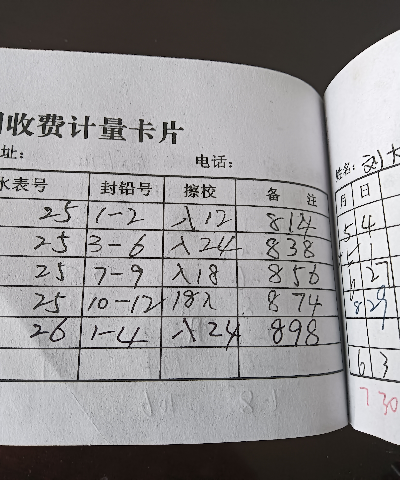 收费计量卡片
址： 电话：
水表号 封铅号 擦校 备 注
25 1-2 入12 814
25 3-6 入24 838
25 7-9 入18 856
25 10-12 18入 874
26 1-4 入24 898
姓名：刘
月 日
5 4
6 27
8 29
6 3
7 30